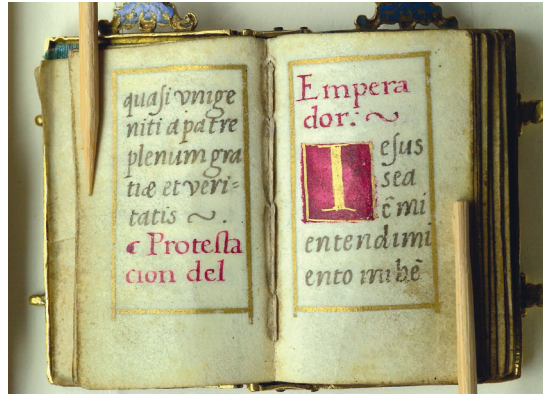 quaſi vnige
niti a patre
plenum gra
tiæ et veri=
tatis ~.
Proteſta
cion del
Empera
dor: ~
Ieſus
sea
ē mi
entendimi
ento mi bē